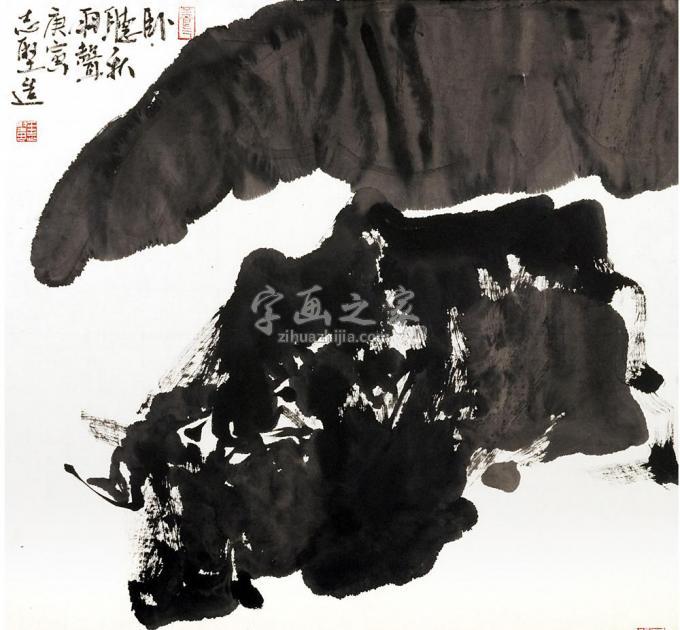 卧
聽秋
雨聲
庚寅
志堅造
字画之家
zihuazhijia.com